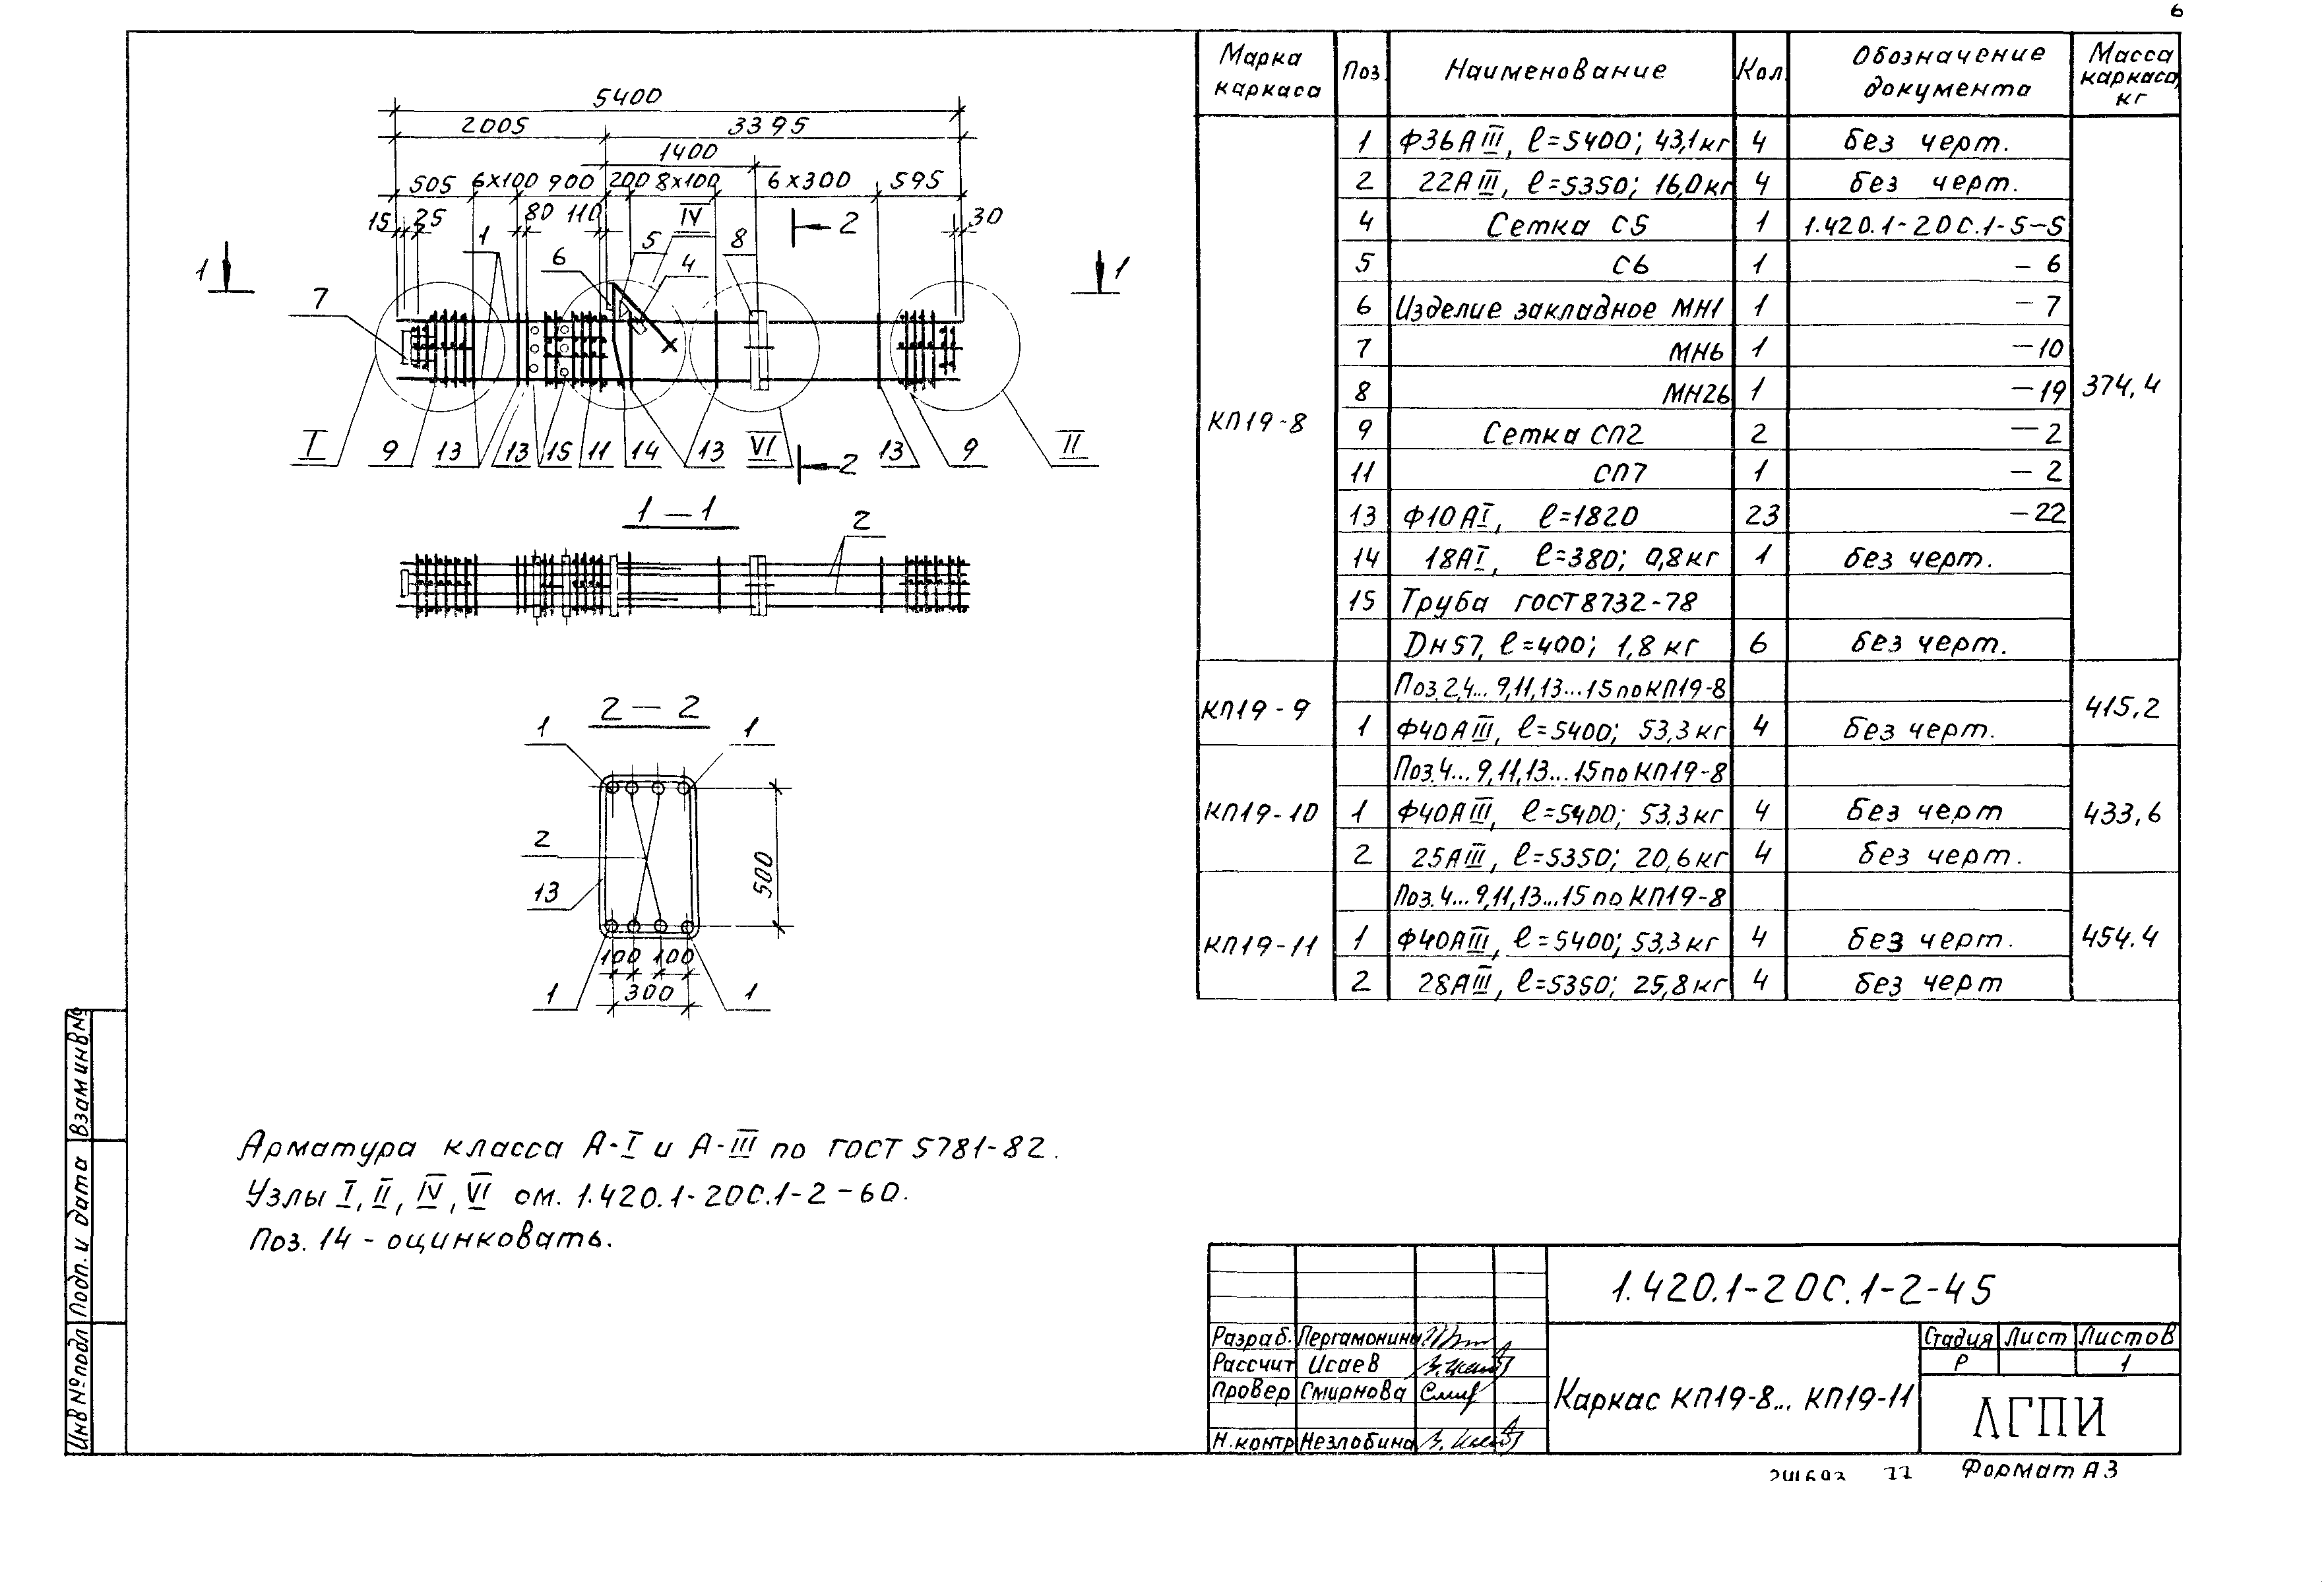 6
5400
2005 3395
1400
505 6×100 900 200 8×100 6×300 595
15 25 80 110 IV 2 30
1 1 6 5 4 8 1
7
I 9 13 13 15 11 14 13 VI 2 13 9 II
1—1
2
2—2
1 1
2
13
500
100 100
300
1 1
Марка каркаса Поз. Наименование Кол. Обозначение документа Масса каркаса, кг
КП19-8 374,4
1 Ф36АIII, ℓ=5400; 43,1кг 4 без черт.
2 22АIII, ℓ=5350; 16,0кг 4 без черт.
4 Сетка С5 1 1.420.1-20С.1-5-5
5 С6 1 -6
6 Изделие закладное МН1 1 -7
7 МН6 1 -10
8 МН26 1 -19
9 Сетка СП2 2 -2
11 СП7 1 -2
13 Ф10АI, ℓ=1820 23 -22
14 18АI, ℓ=380; 0,8кг 1 без черт.
15 Труба ГОСТ8732-78
Dн57, ℓ=400; 1,8кг 6 без черт.
КП19-9 415,2
Поз.2,4...9,11,13...15 по КП19-8
1 Ф40АIII, ℓ=5400; 53,3кг 4 без черт.
КП19-10 433,6
Поз.4...9,11,13...15 по КП19-8
1 Ф40АIII, ℓ=5400; 53,3кг 4 без черт
2 25АIII, ℓ=5350; 20,6кг 4 без черт.
КП19-11 454.4
Поз.4...9,11,13...15 по КП19-8
1 Ф40АIII, ℓ=5400; 53,3кг 4 без черт.
2 28АIII, ℓ=5350; 25,8кг 4 без черт
Арматура класса А-I и А-III по ГОСТ 5781-82.
Узлы I, II, IV, VI см. 1.420.1-20С.1-2-60.
Поз. 14 - оцинковать.
Взам инв№
Подп. и дата
Инв № подл
1.420.1-20С.1-2-45
Разраб. Пергамонина
Рассчит Исаев
Провер Смирнова
Н.контр Незлобина
Каркас КП19-8... КП19-11
Стадия Лист Листов
Р 1
ЛГПИ
Формат А3